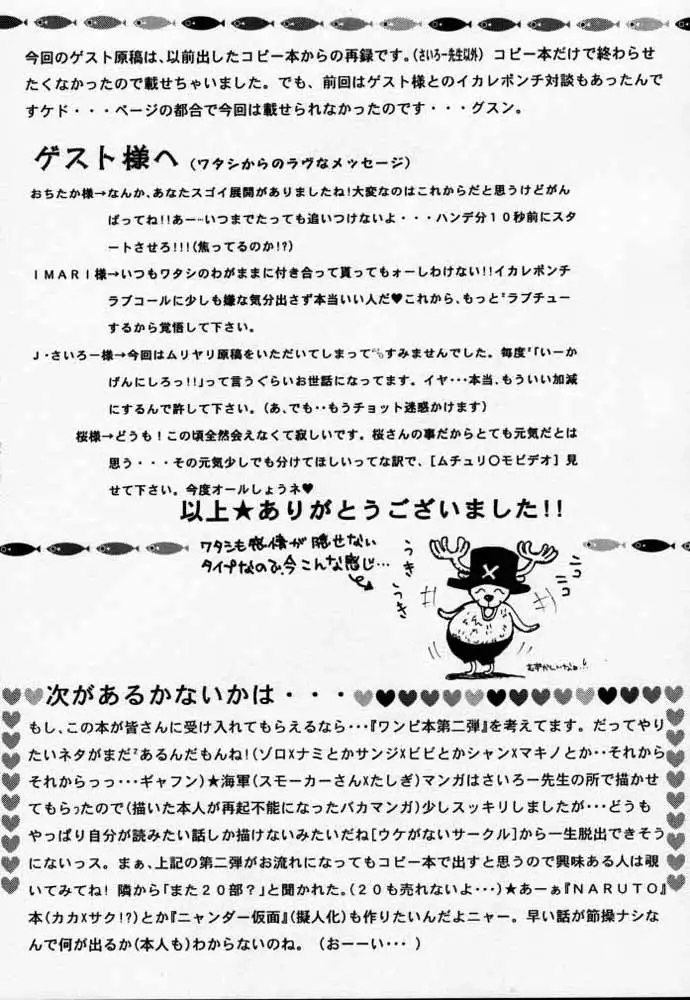 今回のゲスト原稿は、以前出したコピー本からの再録です。(さいろー先生以外) コピー本だけで終わらせ
たくなかったので載せちゃいました。でも、前回はゲスト様とのイカレポンチ対談もあったんで
すケド・・・ページの都合で今回は載せられなかったのです・・・グスン。
ゲスト様へ (ワタシからのラヴなメッセージ)
おちたか様→なんか、あなたスゴイ展開がありましたね!大変なのはこれからだと思うけどがん
ばってね!!あー…いつまでたっても追いつけないよ・・・ハンデ分10秒前にスタ
ートさせろ!!!(焦ってるのか!?)
IMARI様→いつもワタシのわがままに付き合って貰ってもォーしわけない!!イカレポンチ
ラブコールに少しも嫌な気分出さず本当いい人だ♥これから、もっとラブチュー
するから覚悟して下さい。
J・さいろー様→今回はムリヤリ原稿をいただいてしまってすみませんでした。毎度「いーか
げんにしろっ!!」って言うぐらいお世話になってます。イヤ・・・本当、もういい加減
にするんで許して下さい。(あ、でも・・もうチョット迷惑かけます)
桜様→どうも!この頃全然会えなくて寂しいです。桜さんの事だからとても元気だとは
思う・・・その元気少しでも分けてほしいってな訳で、[ムチュリ○モビデオ]見
せて下さい。今度オールしょうネ♥
以上★ありがとうございました!!
ワタシも感情が隠せない
タイプなので、今こんな感じ…
うき
うき
ニコ
ニコ
むずかしいなぁ…!
次があるかないかは・・・
もし、この本が皆さんに受け入れてもらえるなら・・・『ワンピ本第二弾』を考えてます。だってやり
たいネタがまだあるんだもんね!(ゾロxナミとかサンジxビビとかシャンxマキノとか・・それから
それからっっ・・・ギャフン)★海軍(スモーカーさんxたしぎ)マンガはさいろー先生の所で描かせ
てもらったので(描いた本人が再起不能になったバカマンガ)少しスッキリしましたが・・・どうも
やっぱり自分が読みたい話しか描けないみたいだね[ウケがないサークル]から一生脱出できそう
にないっス。まぁ、上記の第二弾がお流れになってもコピー本で出すと思うので興味ある人は覗
いてみてね!隣から「また20部?」と聞かれた。(20も売れないよ・・・)★あーぁ『NARUTO』
本(カカxサク!?)とか『ニャンダー仮面』(擬人化)も作りたいんだよニャー。早い話が節操ナシな
んで何が出るか(本人も)わからないのね。(おーーい・・・)